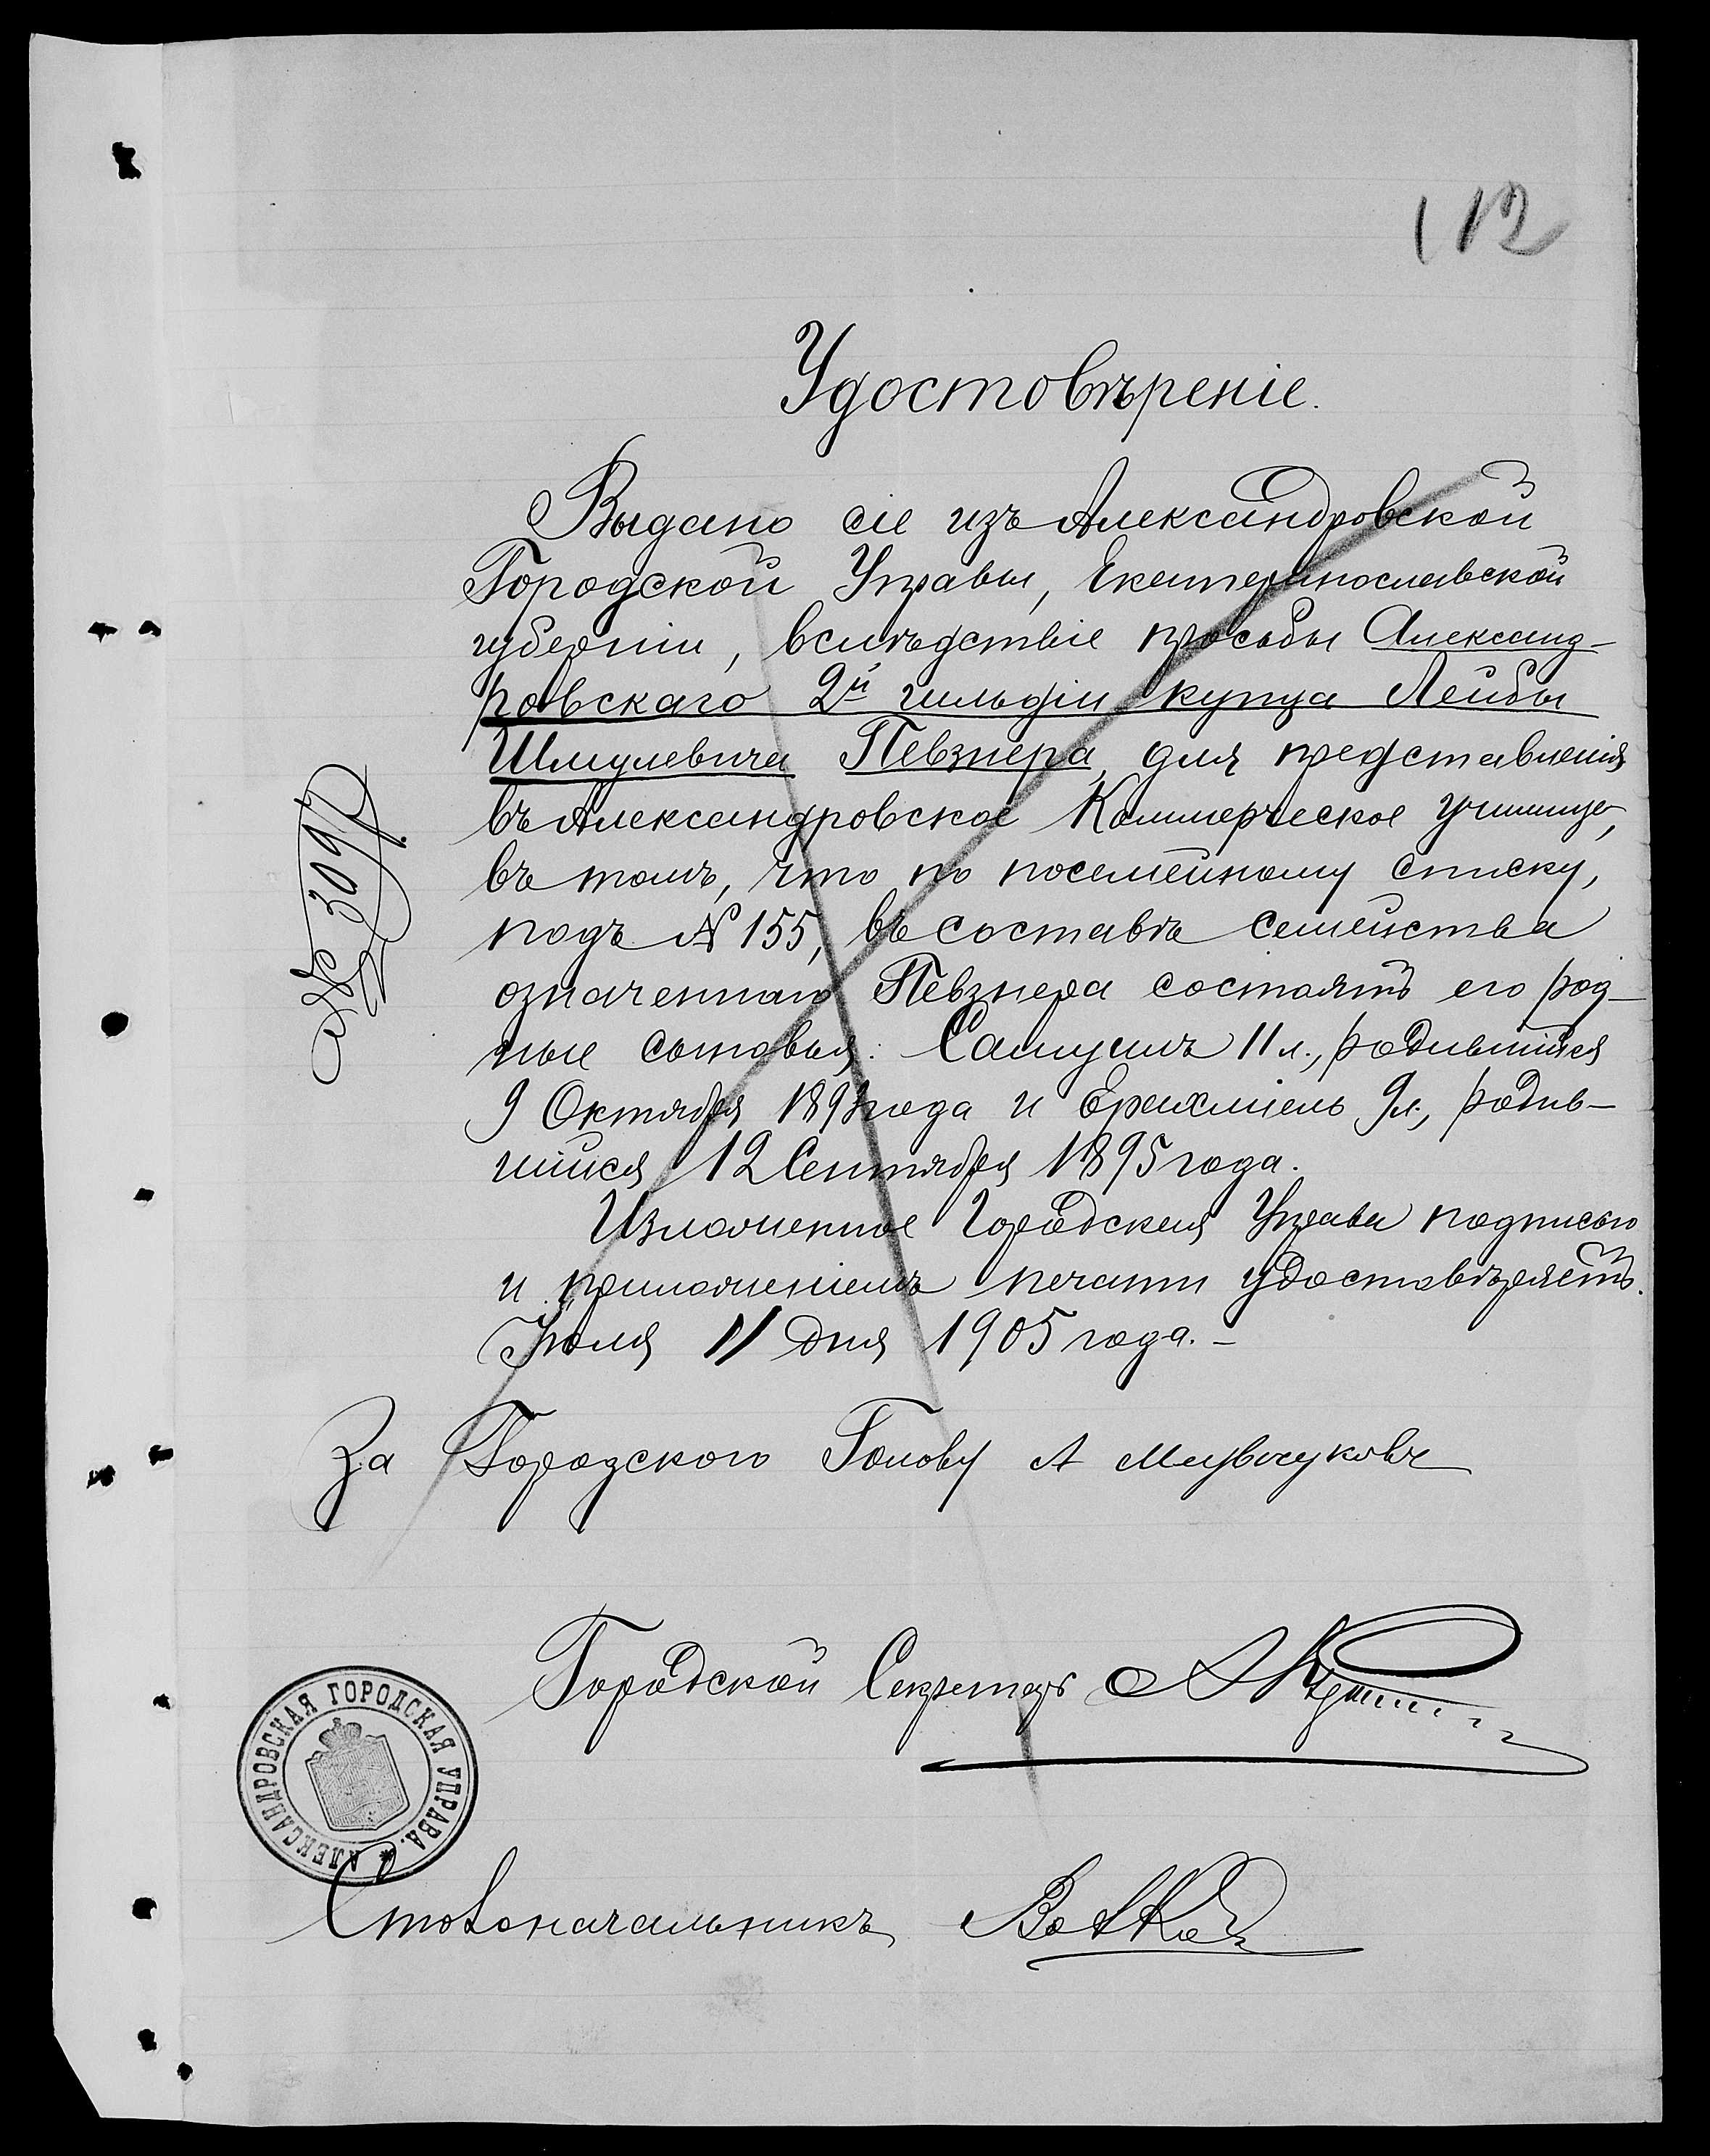 112
Удостовѣреніе.
Выдано сіе изъ Александровской
Городской Управы, Екатеринославской
губерніи, вслѣдствіе просьбы Александ-
ровскаго 2й гильдіи купца Лейбы
Шмулевича Певзнера, для представленія
въ Александровское Коммерческое училище,
въ томъ, что по посемейному списку,
подъ № 155, въ составѣ семейства
означеннаго Певзнера состоятъ его род-
ные сыновья: Самуилъ 11 л., родившійся
9 Октября года и Ерахміель 9 л., родив-
шійся 12 Сентября 1895 года.
Изложенное Городская Управа подписью
и приложеніемъ печати удостовѣряетъ.
Іюля 11 дня 1905 года.-
№ 3097
За Городского Голову А
Городской Секретарь
АЛЕКСАНДРОВСКАЯ ГОРОДСКАЯ УПРАВА.
Столоначальникъ